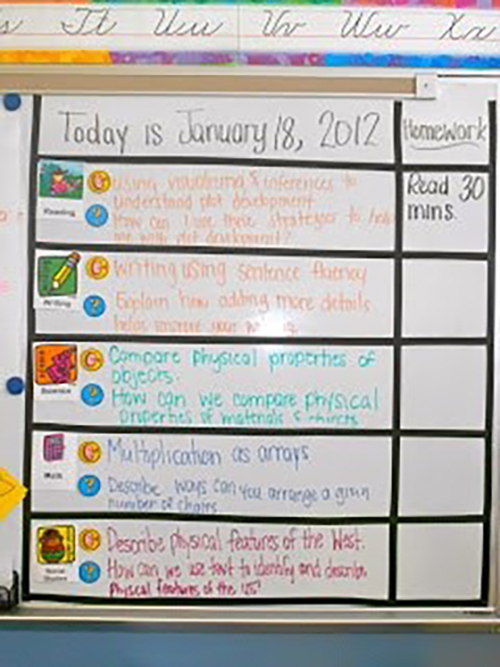 Tt Uu Vv Ww Xx
Today is January 18, 2012
Homework
Reading
C Using visualizing & inferences to
understand plot development
? How can I use these strategies to help
me with plot development?
Read 30
mins.
Writing
C Writing using sentence fluency
? Explain how adding more details
helps improve your
Science
C Compare physical properties of
objects.
? How can we compare physical
properties of materials & objects
Math
C Multiplication as arrays
? Describe ways can you arrange a given
number of chairs
Social
Studies
C Describe physical features of the West.
? How can we use text to identify and describe
physical features of the US?